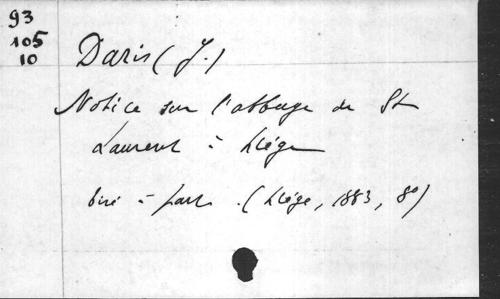 93
105
10
Daris (J.)
Notice sur l'abbaye de St
Laurent à Liége
tiré à part. (Liége, 1883, 8°)